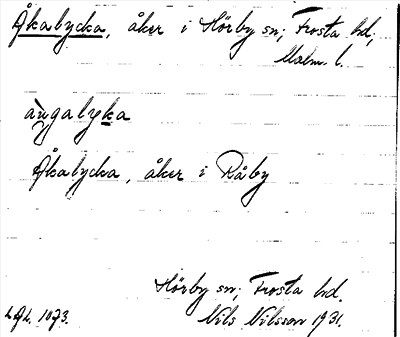 Åkalycka, åker i Hörby sn; Frosta hd;
Malm. l.
àu̯galyka
Åkalycka, åker i Råby
Hörby sn; Frosta hd.
Nils Nilsson 1931.